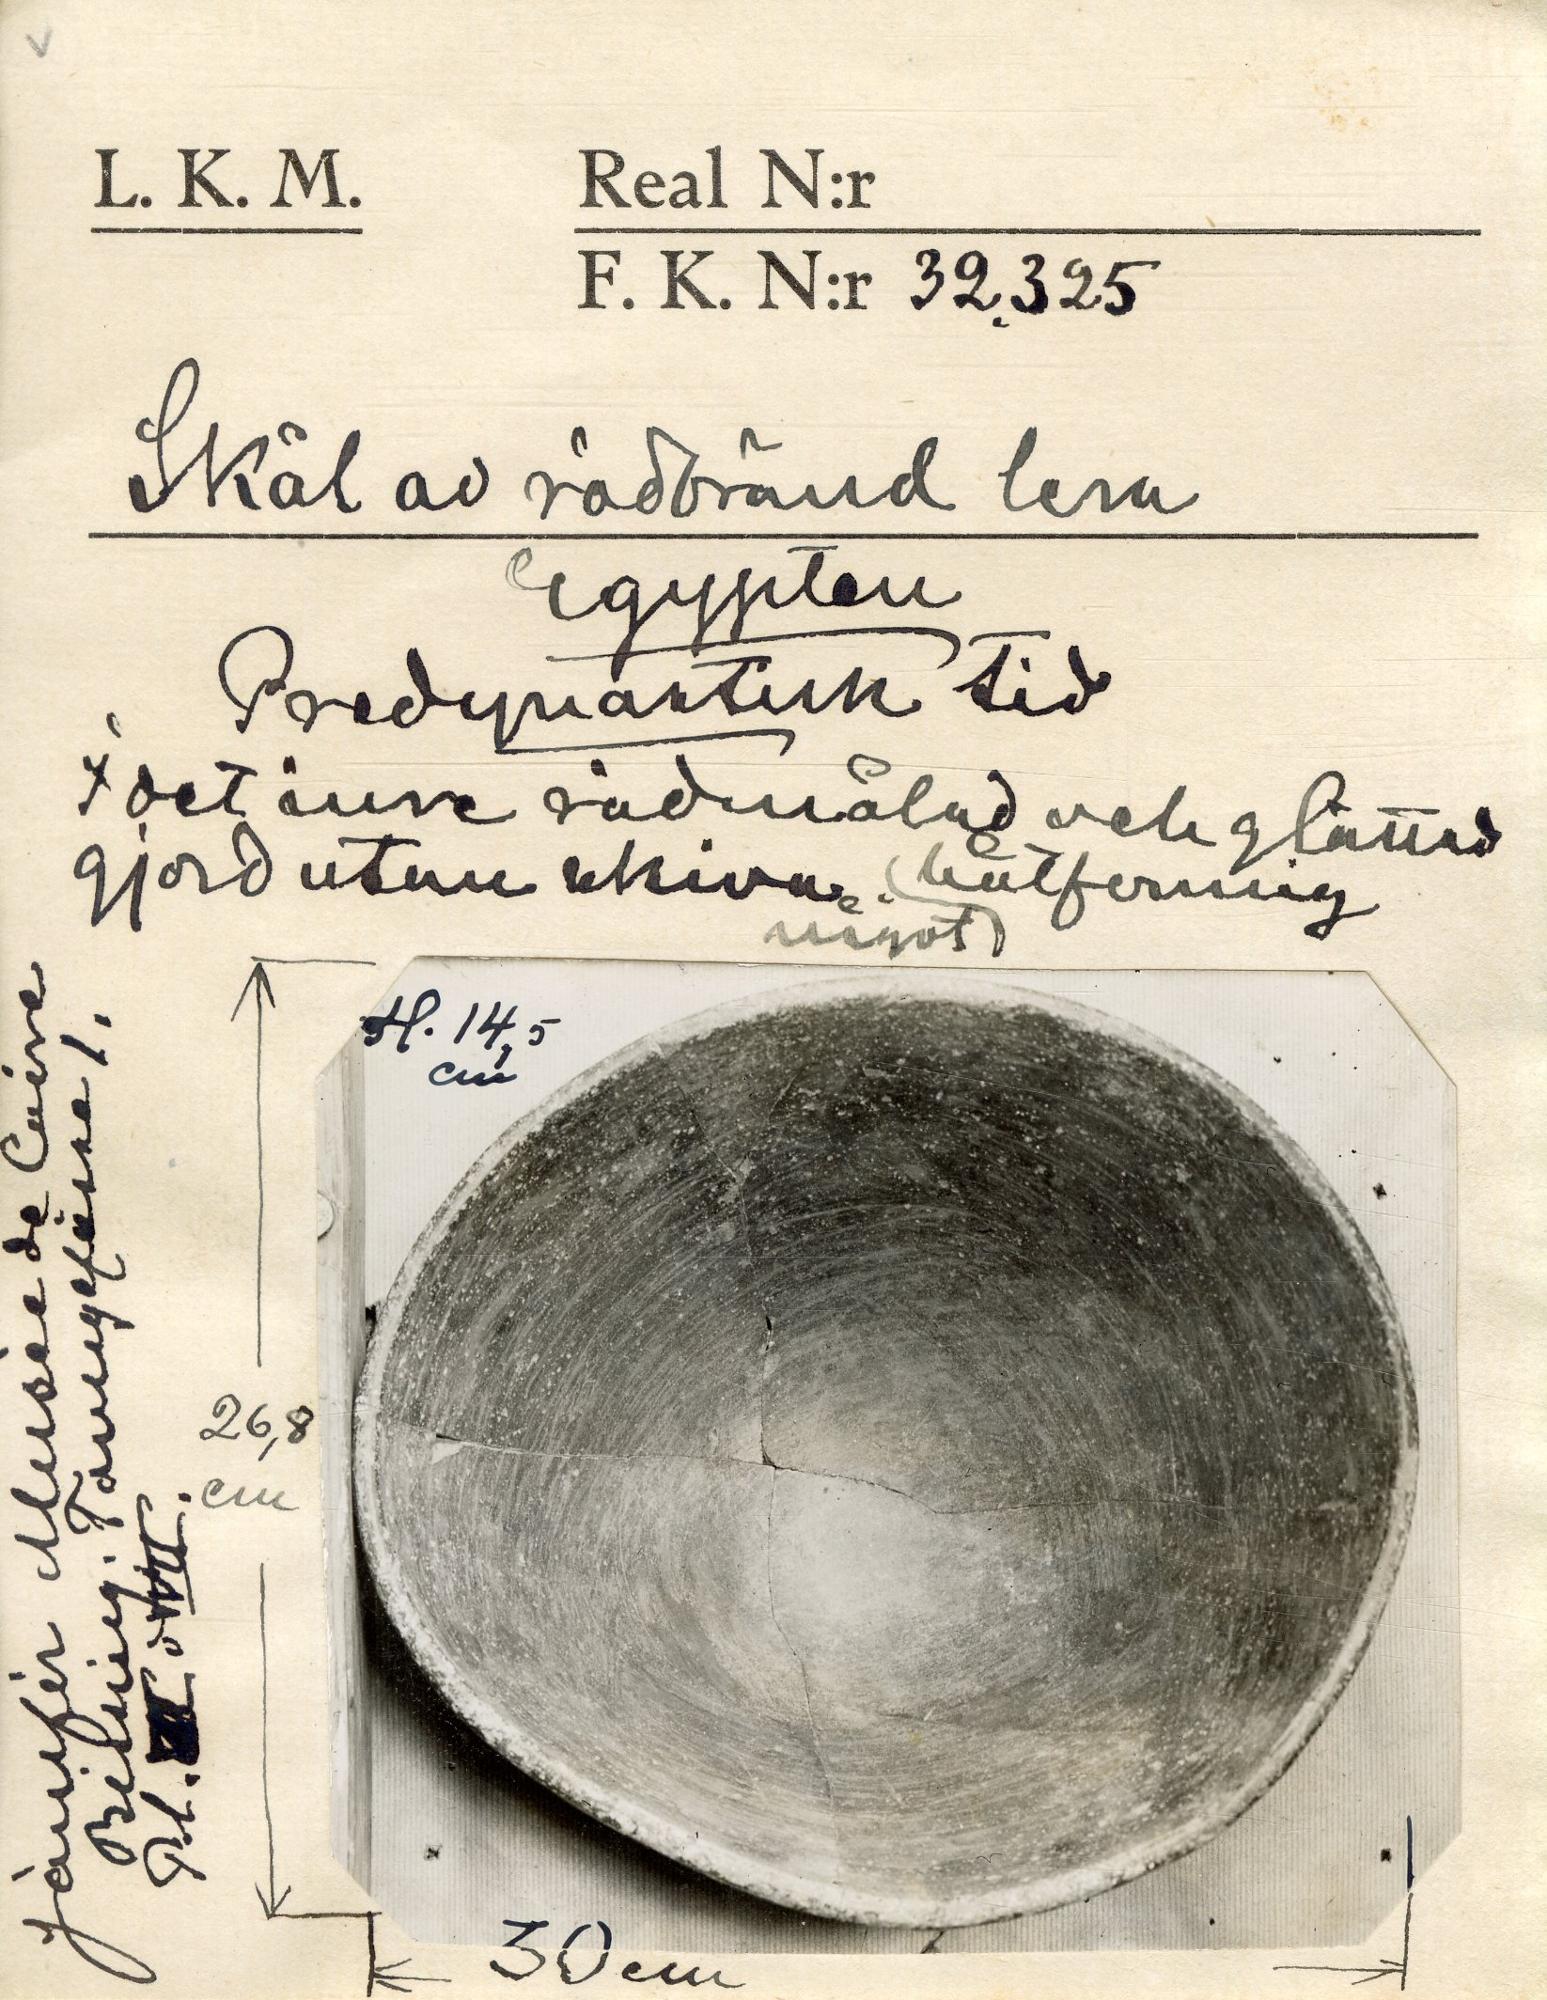 L. K. M.
Real N:r
F. K. N:r 32.325
Skål av rödbränd lera
Egypten
Predynastisk tid
I det inre rödmålad och glättad
gjord utan skiva. (båtformig
något)
H. 14,5
cm
26,8
cm
30 cm
jämför Musée de Caire
Bélnieg.
Pl.